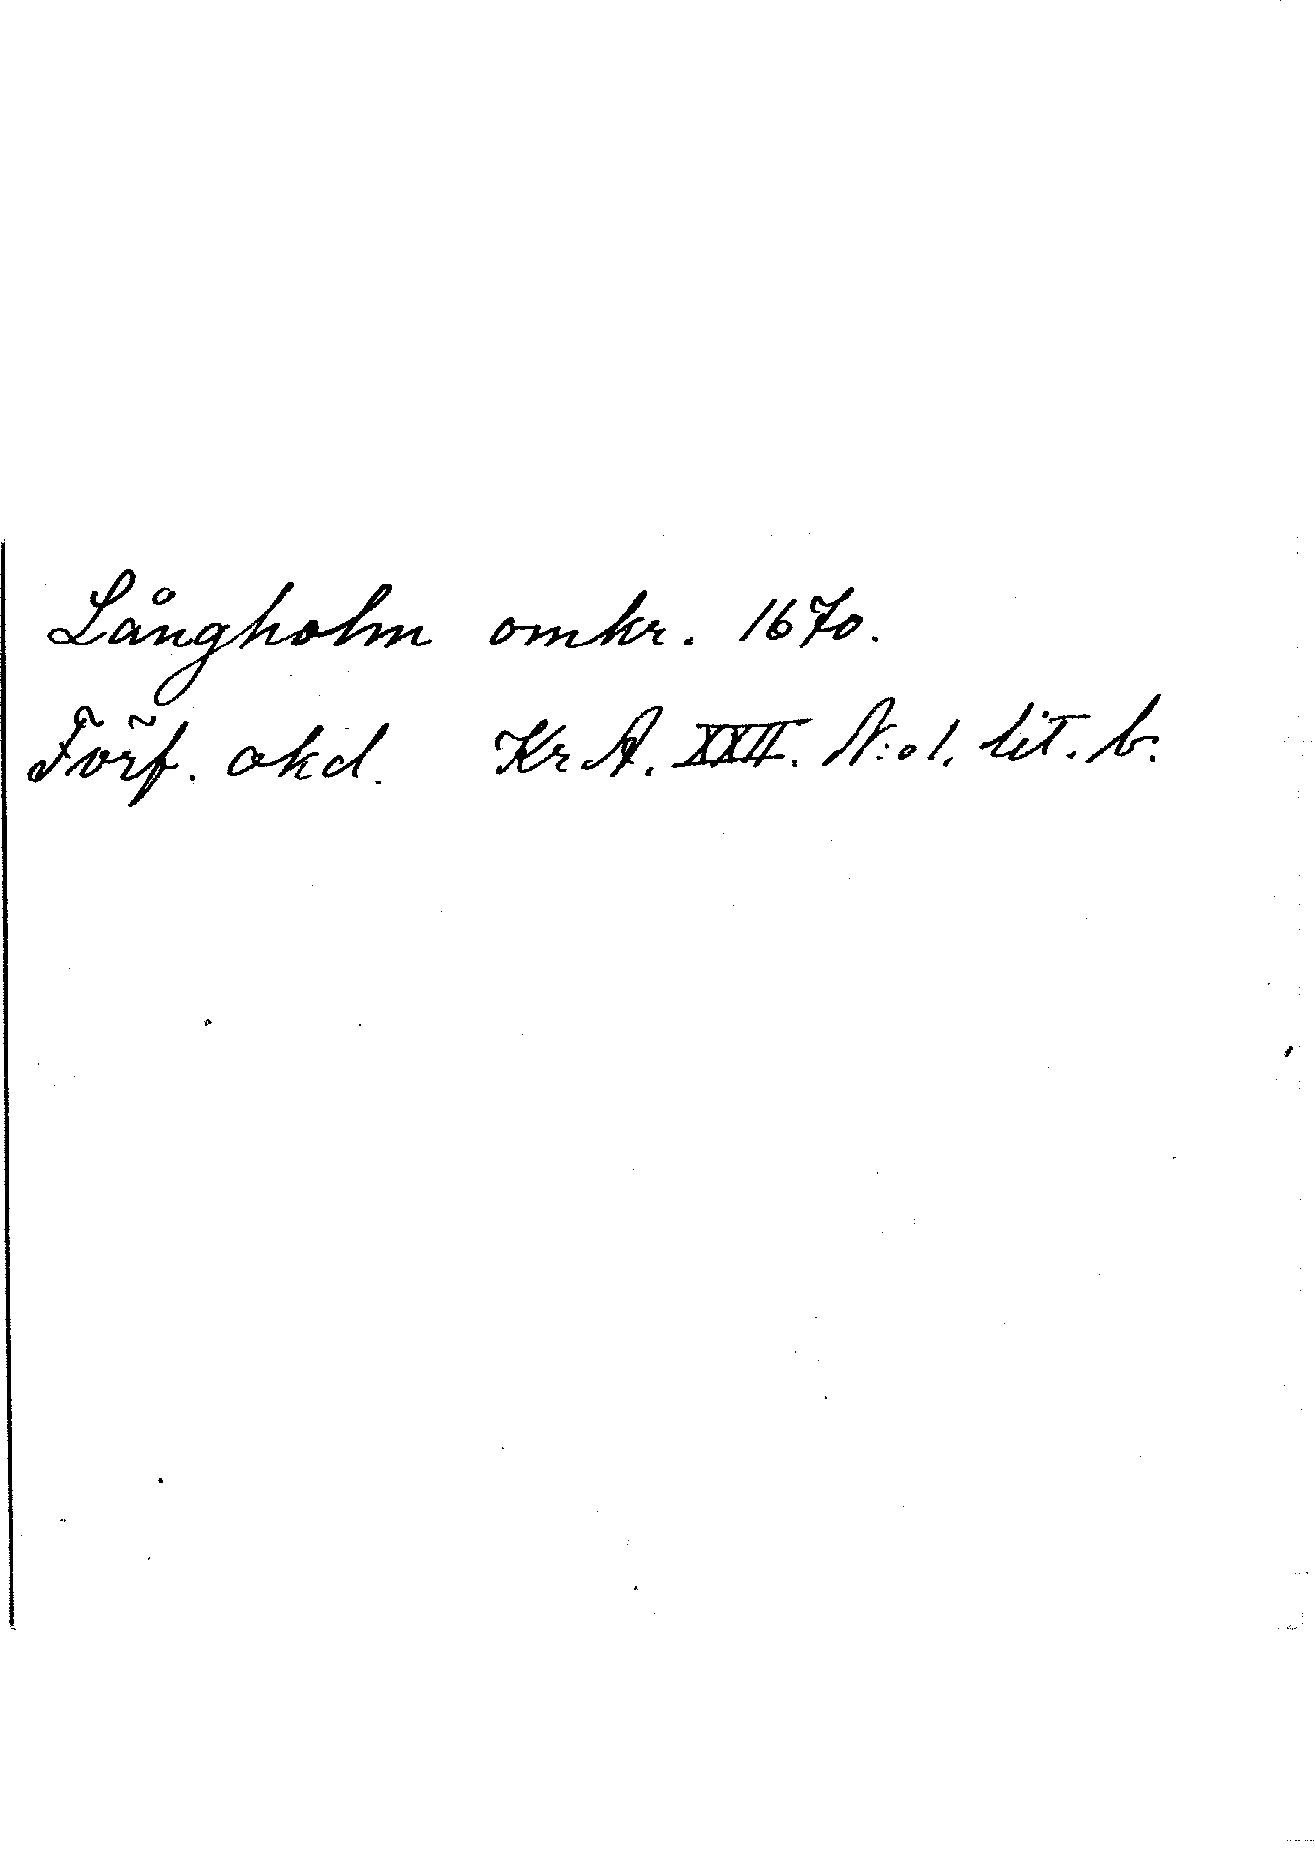 Långholm omkr. 1670.
Förf. okd. Kr A. XXII. N:o 1. lit. b.